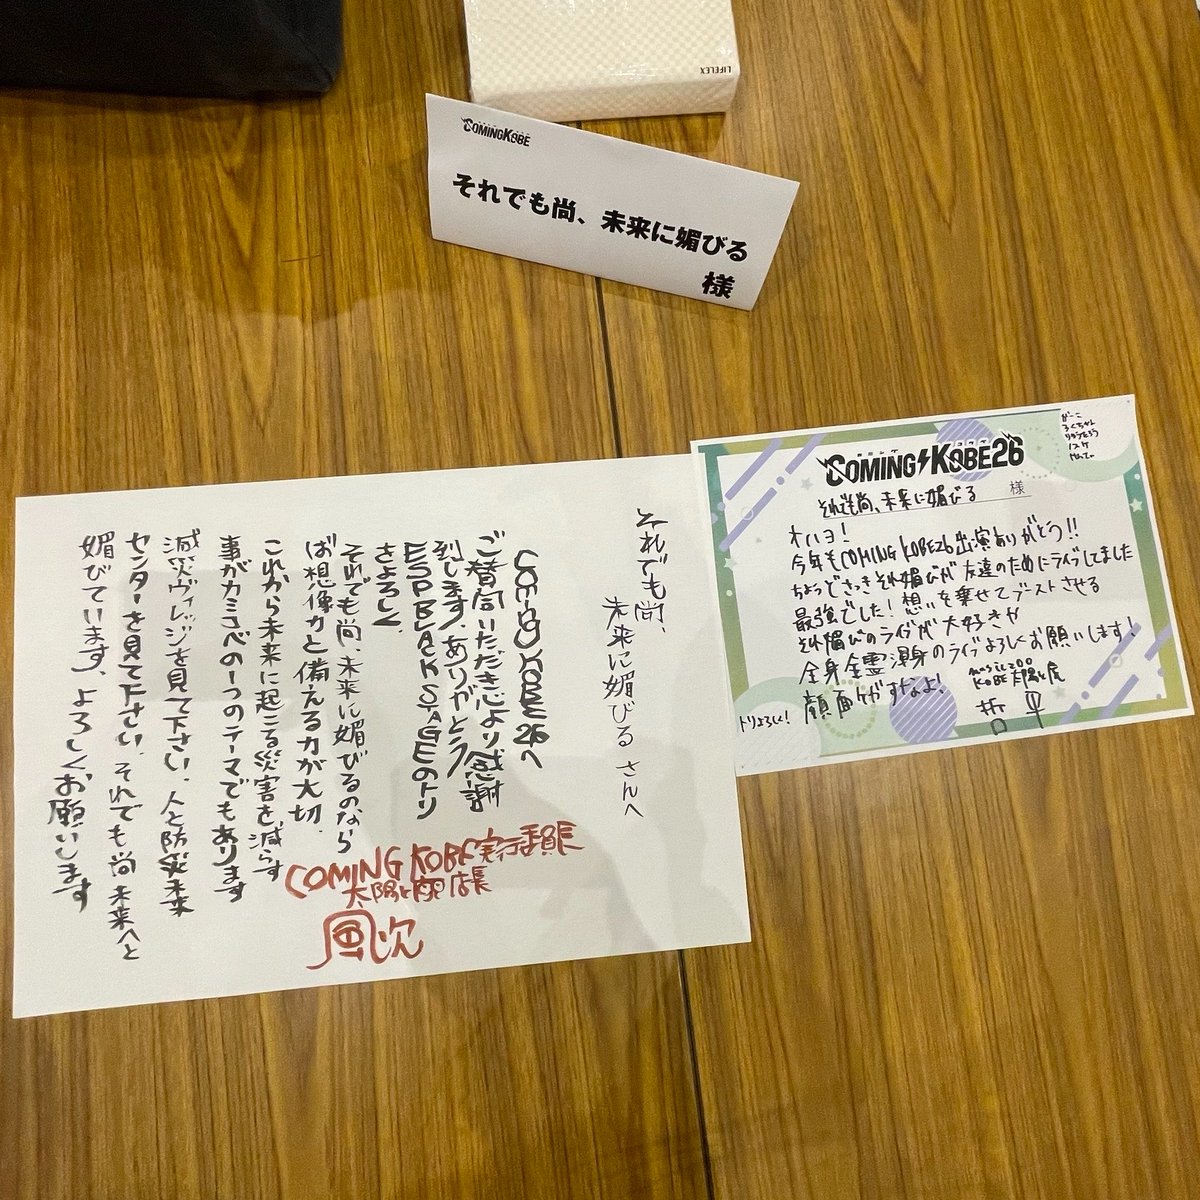 LIFELEX
COMING KOBE
それでも尚、未来に媚びる
様
それでも尚、
未来に媚びる さんへ
COMING KOBE26へ
ご賛同いただき心より感謝
致します。ありがとう
ESP BLACK STAGEのトリ
さよろしく、
それでも尚、未来に媚びるのなら
ば想像力と備える力が大切、
これから未来に起こる災害を減らす
事がカミコベの1つのテーマでもあります
減災ヴィレッジを見て下さい、人と防災未来
センターを見て下さい、それでも尚 未来へと
媚びています、よろしくお願いします
COMING KOBE実行委員長
太陽と虎 店長
風次
COMING KOBE26
それでも尚、未来に媚びる 様
がーこ
ろくちゃん
オハヨ!
今年もCOMING KOBE26出演ありがとう!!
ちょうどさっき それ媚びが 友達のためにライブしてました
最強でした! 想いを乗せてブーストさせる
それ媚びのライブが大好きや
全身全霊 渾身のライブよろしくお願いします!
顔面ケガすなよ!
トリよろしく!
music zoo
KOBE 太陽と虎